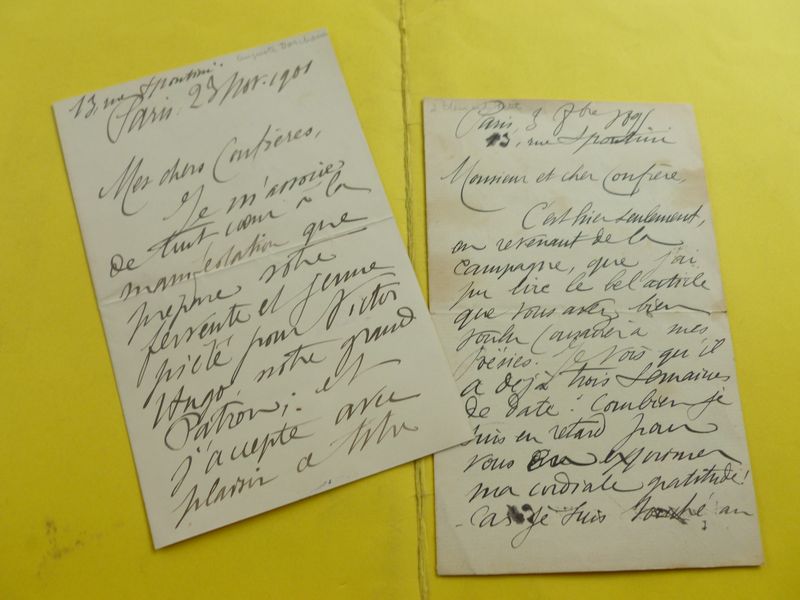 Auguste Dorchain
13, rue Spontini.
Paris, 23 Nov. 1901
Mes chers Confrères,
Je m'associe
de tout cœur à la
manifestation que
prépare votre
fervente et jeune
piété pour Victor
Hugo, notre grand
Patron; et
j'accepte avec
plaisir a
Paris, 3 8bre
13, rue Spontini
Monsieur et cher Confrère,
C'est hier seulement,
en revenant de la
campagne, que j'ai
pu lire le bel article
que vous avez bien
voulu consacrer à mes
poésies. Je vois qu'il
a déjà trois semaines
de date! Combien je
suis en retard pour
vous exprimer
ma cordiale gratitude!
Car je suis touché au